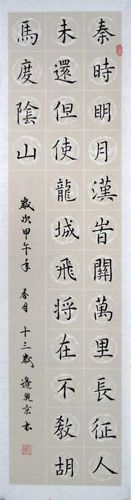 秦時明月漢旹關萬里長征人
未還但使龍城飛将在不教胡
馬度陰山
歲次甲午年 春月 十三歲